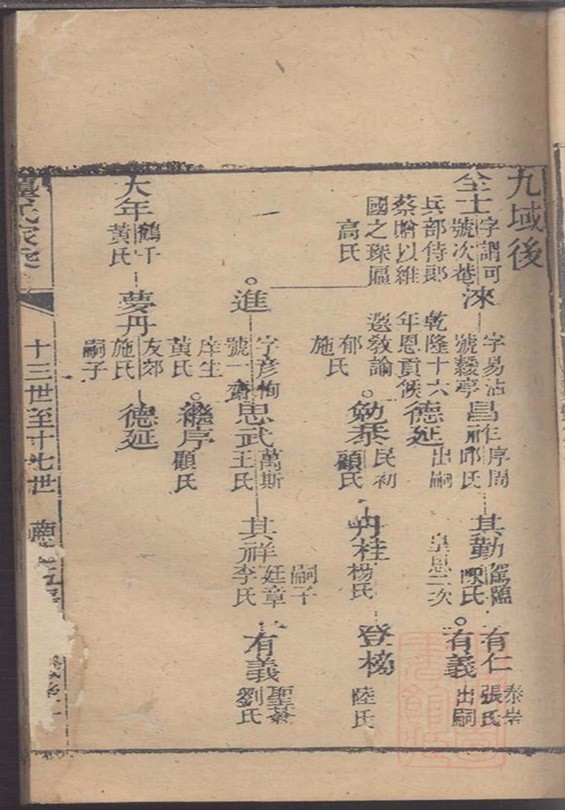 九域後
全士
字謂可
號次菴
兵部侍郎
蔡贈以維
國之琛匾
高氏
淶
字易沾
號𦆯亭
乾隆十六
年恩貢候
選教諭
郁氏
施氏
昌祚
序周
邱氏
其勤
陳氏
有仁
泰岩
張氏
有義
出嗣
德延
出嗣
皇恩二次
勉泰
民初
顧氏
丹桂
楊氏
登
陸氏
進
字彥恂
號一齋
庠生
黃氏
思武
萬斯
王氏
其祥
嗣子
廷章
李氏
有義
聖菴
劉氏
繼序
顧氏
大年
鶴千
黃氏
夢丹
友郊
施氏
嗣子
德延
氏家
十三世至十七世